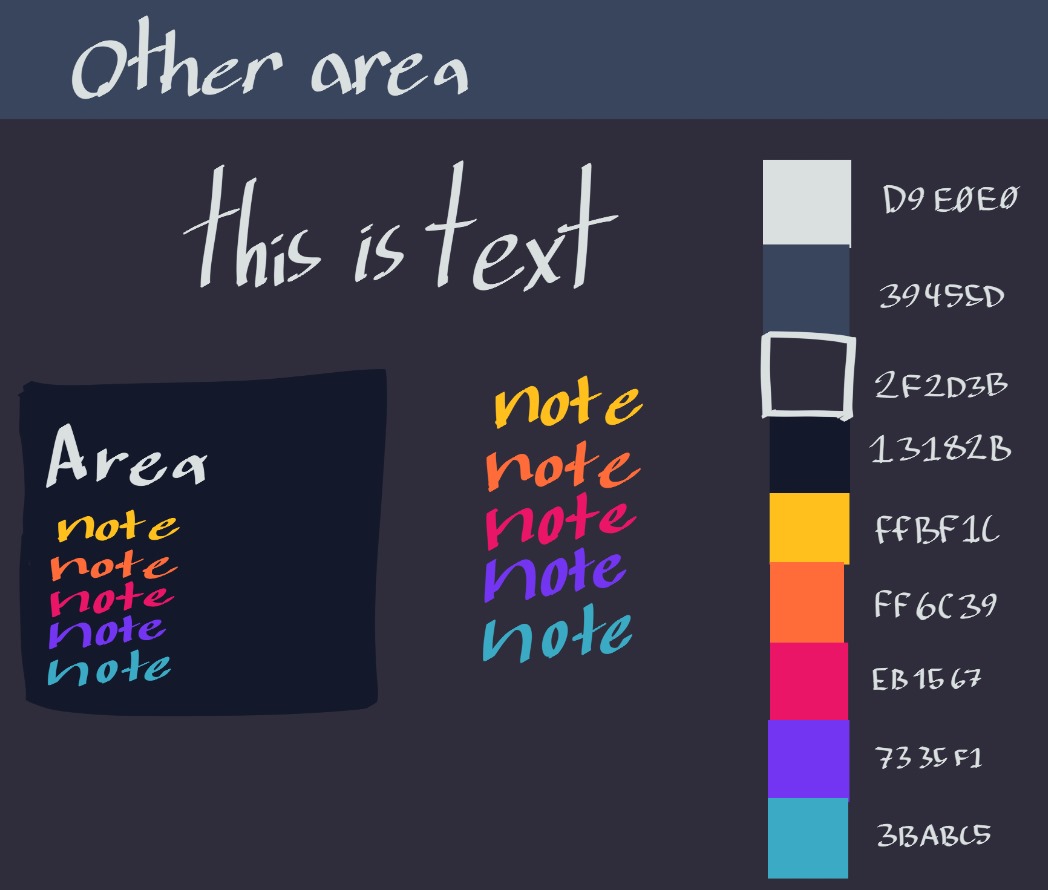 Other area
this is text
Area
note
note
note
note
note
note
note
note
note
note
D9E0E0
39455D
2F2D3B
13182B
FFBF1C
FF6C39
EB1567
7335F1
3BABC5